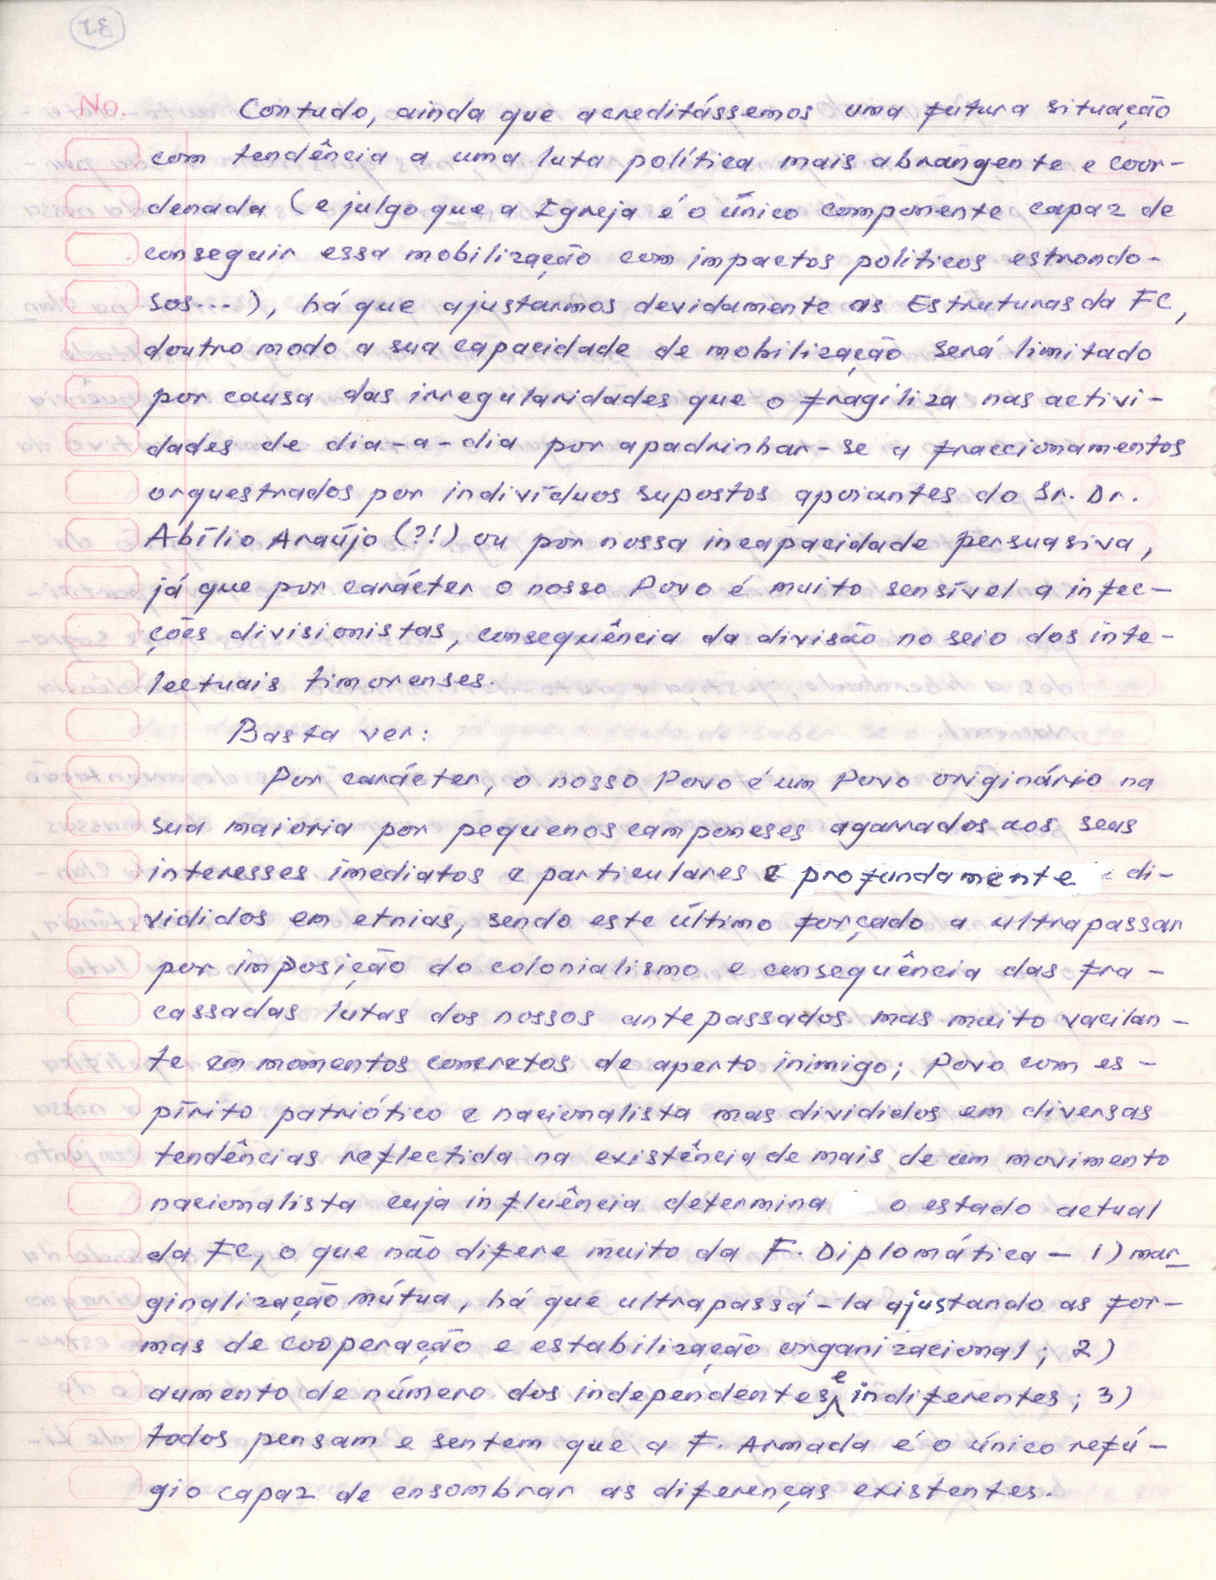 No.
Contudo, ainda que acreditássemos uma futura situação
com tendência a uma luta política mais abrangente e coor-
denada (e julgo que a Igreja é o único componente capaz de
conseguir essa mobilização com impactos políticos estrondo-
sos...), há que ajustarmos devidamente as Estruturas da FC,
doutro modo a sua capacidade de mobilização será limitado
por causa das irregularidades que o fragiliza nas activi-
dades de dia-a-dia por apadrinhar-se a fraccionamentos
orquestrados por indivíduos supostos apoiantes do Sr. Dr.
Abílio Araújo (?!) ou por nossa incapacidade persuasiva,
já que por carácter o nosso Povo é muito sensível a infec-
ções divisionistas, consequência da divisão no seio dos inte-
lectuais timorenses.
Basta ver:
Por carácter, o nosso Povo é um Povo originário na
sua maioria por pequenos camponeses agarrados aos seus
interesses imediatos e particulares e profundamente di-
vididos em etnias, sendo este último forçado a ultrapassar
por imposição do colonialismo e consequência das fra-
cassadas lutas dos nossos antepassados mas muito vacilan-
te em momentos concretos de aperto inimigo; Povo com es-
pírito patriótico e nacionalista mas divididos em diversas
tendências reflectida na existência de mais de um movimento
nacionalista cuja influência determina o estado actual
da FC, o que não difere muito da F. Diplomática - 1) mar-
ginalização mútua, há que ultrapassá-la ajustando as for-
mas de cooperação e estabilização organizacional; 2)
aumento de número dos independentes e indiferentes; 3)
todos pensam e sentem que a F. Armada é o único refú-
gio capaz de ensombrar as diferenças existentes.